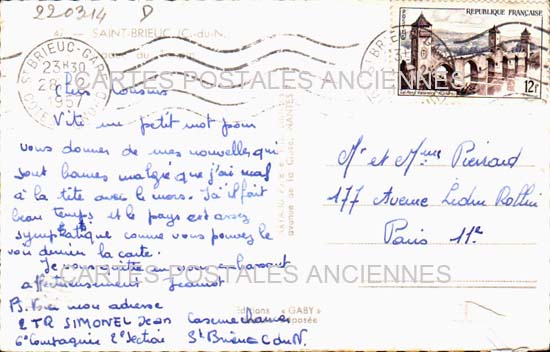 220314
42 - SAINT-BRIEUC (C.-du-N.)
RÉPUBLIQUE FRANÇAISE
12f
ST BRIEUC-GARE
23H30
28
1957
CARTES POSTALES ANCIENNES
Chers Cousins
Vite un petit mot pour
vous donner de mes nouvelles qui
sont bonnes malgré que j'ai mal
à la tête avec le mors. Ici il fait
beau temps et le pays est assez
sympathique comme vous pouvez le
voir derrière la carte.
Je vous quitte en vous embrassant
affectueusement Jeannot
P.S. Voici mon adresse
2 TR SIMONEL Jean Caserne Charner
6e Compagnie 2e Section St Brieuc C du N.
Mr et Mme Pierrard
177 Avenue Ledru Rollin
Paris 11e
CARTES POSTALES ANCIENNES
Editions « GABY »